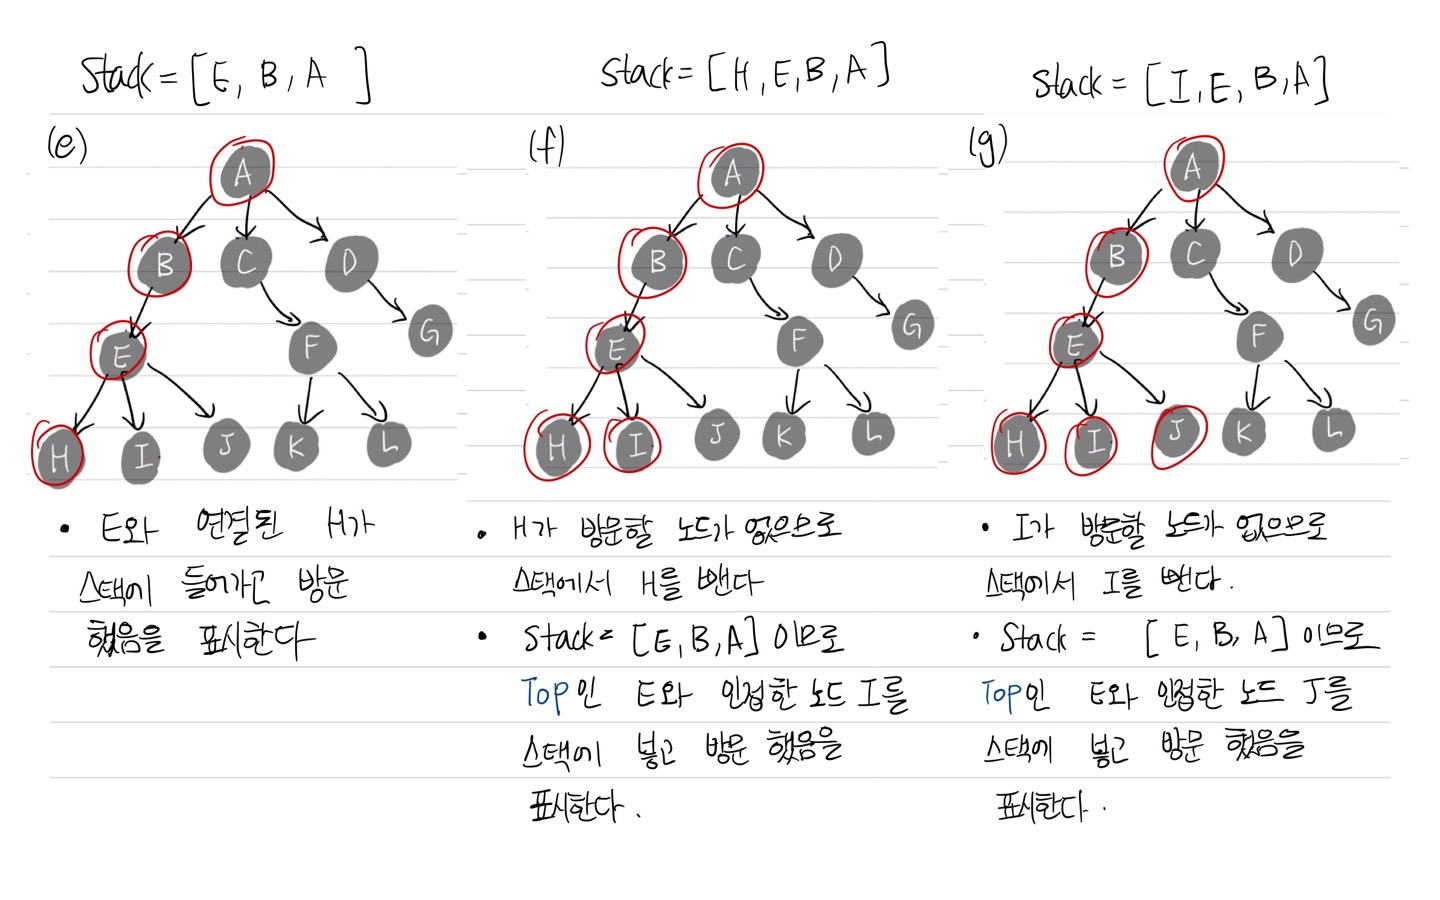 Stack = [E, B, A ]
(e)
A
B C D
E F G
H I J K L
• E와 연결된 H가
스택에 들어가고 방문
했음을 표시한다
Stack = [H, E, B, A]
(f)
A
B C D
E F G
H I J K L
• H가 방문할 노드가 없으므로
스택에서 H를 뺀다
• Stack = [E, B, A] 이므로
Top인 E와 인접한 노드 I를
스택에 넣고 방문 했음을
표시한다.
Stack = [I, E, B, A]
(g)
A
B C D
E F G
H I J K L
• I가 방문할 노드가 없으므로
스택에서 I를 뺀다.
• Stack = [E, B, A] 이므로
Top인 E와 인접한 노드 J를
스택에 넣고 방문 했음을
표시한다.